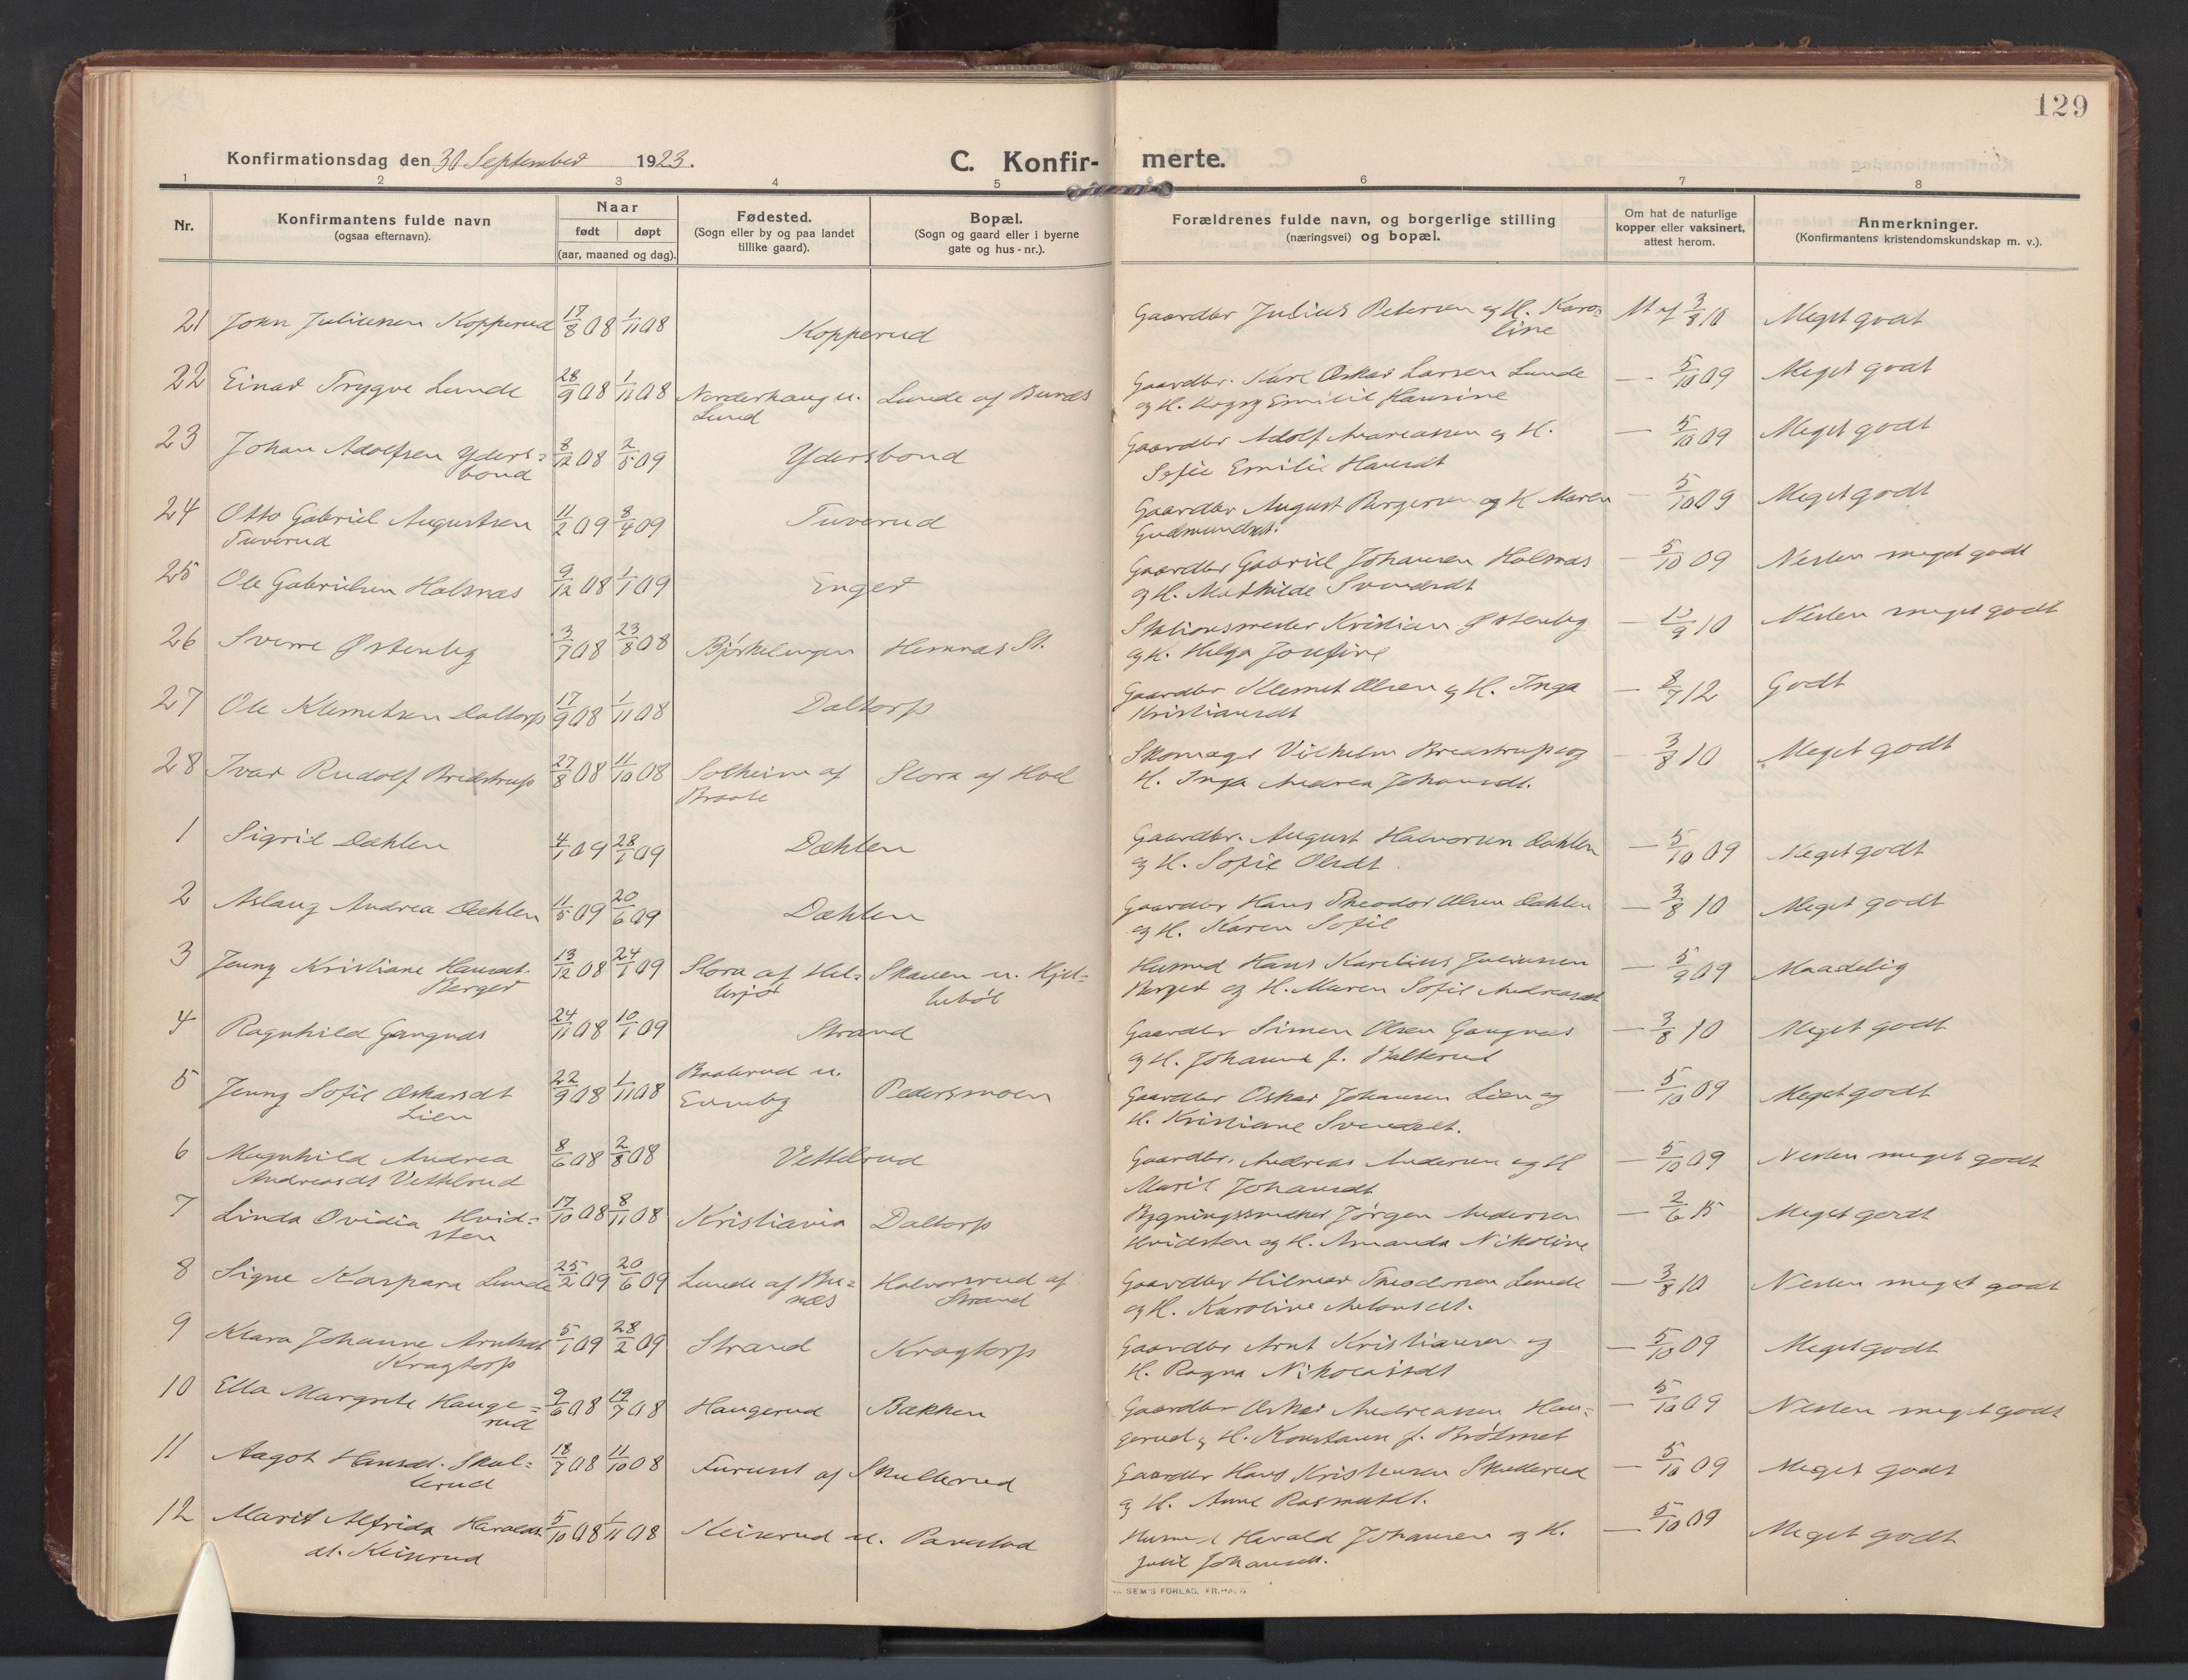 129
Konfirmationsdag den 30 September 1923.
C. Konfir- merte.
1 2 3 4 5 6 7 8
Nr.
Konfirmantens fulde navn
(ogsaa efternavn).
Naar
født døpt
(aar, maaned og dag).
Fødested.
(Sogn eller by og paa landet
tillike gaard).
Bopæl.
(Sogn og gaard eller i byerne
gate og hus-nr.).
Forældrenes fulde navn, og borgerlige stilling
(næringsvei) og bopæl.
Om hat de naturlige
kopper eller vaksinert,
attest herom.
Anmerkninger.
(Konfirmantens kristendomskundskap m. v.).
21 John Juliussen Kopperud 17/8 08 1/11 08 Kopperud Gaardbr Julius Petersen og H. Karo-
line 3/8 10 Meget godt
22 Einar Trygve Lunde 28/9 08 1/11 08 Norderhaug u.
Lund Lunde af Bunæs Gaardbr. Karl Oskar Larsen Lunde
og H. Emilie Hansine — 5/10 09 Meget godt
23 Johan Adolfsen Yders-
bond 8/12 08 2/5 09 Ydersbond Gaardbr Adolf Andreassen og H.
Sofie Emilie Hansdt — 5/10 09 Meget godt
24 Otto Gabriel Augustsen
Tuverud 11/2 09 8/4 09 Tuverud Gaardbr August Borgersen og H Maren
Gudmundsdt. — 5/10 09 Meget godt
25 Ole Gabrielsen Holsnæs 9/12 08 1/1 09 Enger Gaardbr Gabriel Johansen Holsnæs
og H. Mathilde Svendsdt — 5/10 09 Nesten meget godt
26 Sverre Østenby 3/7 08 23/8 08 Bjørkelangen Hemnæs St. Stationsmester Kristian Østenby
og H. Helga Josefine — 9 10 Nesten meget godt
27 Ole Klemetsen Daltorp 17/9 08 1/11 08 Daltorp Gaardbr Klemet Olsen og H. Inga
Kristiansdt — 8/7 12 Godt
28 Ivar Rudolf Bredstrup 27/8 08 11/10 08 Solheim af
Braate Slora af Hoel Skomager Vilhelm Bredstrup og
H. Inga Andrea Johansdt. — 3/8 10 Meget godt
1 Sigrid Dæhlen 4/1 09 28/1 09 Dæhlen Gaardbr. August Halvorsen Dæhlen
og H. Sofie Olsdt. — 5/10 09 Meget godt
2 Aslaug Andrea Dæhlen 11/5 09 20/6 09 Dæhlen Gaardbr Hans Theodor Olsen Dæhlen
og H. Karen Sofie — 3/8 10 Meget godt
3 Jenny Kristiane Hansdt.
Berger 13/12 08 24/1 09 Slora af Hel-
lesjø Skauen u. Kjel-
lebøl Husmd Hans Karelius Juliussen
Berger og H. Maren Sofie Andreasdt — 5/9 09 Maadelig
4 Ragnhild Gangnæs 24/11 08 10/1 09 Strand Gaardbr Simen Olsen Gangnæs
og H. Johanne f. Kalterud — 3/8 10 Meget godt
5 Jenny Sofie Oskarsdt
Lien 22/9 08 1/11 08 Baalerud u.
Evenby Pedersmoen Gaardbr Oskar Johansen Lien og
H. Kristiane Svendsdt. — 5/10 09 Meget godt
6 Magnhild Andrea
Andreasdt Vettelrud 8/6 08 2/8 08 Vettelrud Gaardbr. Andreas Andersen og H
Marie Johansdt — 5/10 09 Nesten meget godt
7 Linda Ovidia Hvid-
sten 17/10 08 8/11 08 Kristiania Daltorp Bygningssnekker Jørgen Andersen
Hvidsten og H. Amanda Nikoline — 2/6 15 Meget godt
8 Signe Kaspara Lunde 25/2 09 20/6 09 Lunde af Bu-
næs Halvorsrud af
Strand Gaardbr Hilmar Theodorsen Lunde
og H. Karoline Antonsdt. — 3/8 10 Nesten meget godt
9 Klara Johanne Arntsdt
Kragtorp 5/1 09 28/2 09 Strand Kragtorp Gaardbr Arnt Kristiansen og
H. Ragna Nikolaisdt — 5/10 09 Meget godt
10 Ella Margrete Hauge-
rud 9/6 08 19/7 08 Haugerud Bakken Gaardbr Oskar Andreassen Hau-
gerud og H. Konstanse f. Brøtmet — 5/10 09 Nesten meget godt
11 Aagot Hansdt. Skul-
lerud 18/7 08 11/10 08 Furunt af Skullerud Gaardbr Hans Kristensen Skullerud
og H. Anne Rasmusdt. — 5/10 09 Meget godt
12 Marit Alfrida Haralds-
dt. Keiserud 5/10 08 1/11 08 Keiserud u. Parestad Husmd Harald Johansen og H.
Julie Johansdt. — 5/10 09 Meget godt
SEM'S FORLAG, FR.HALD